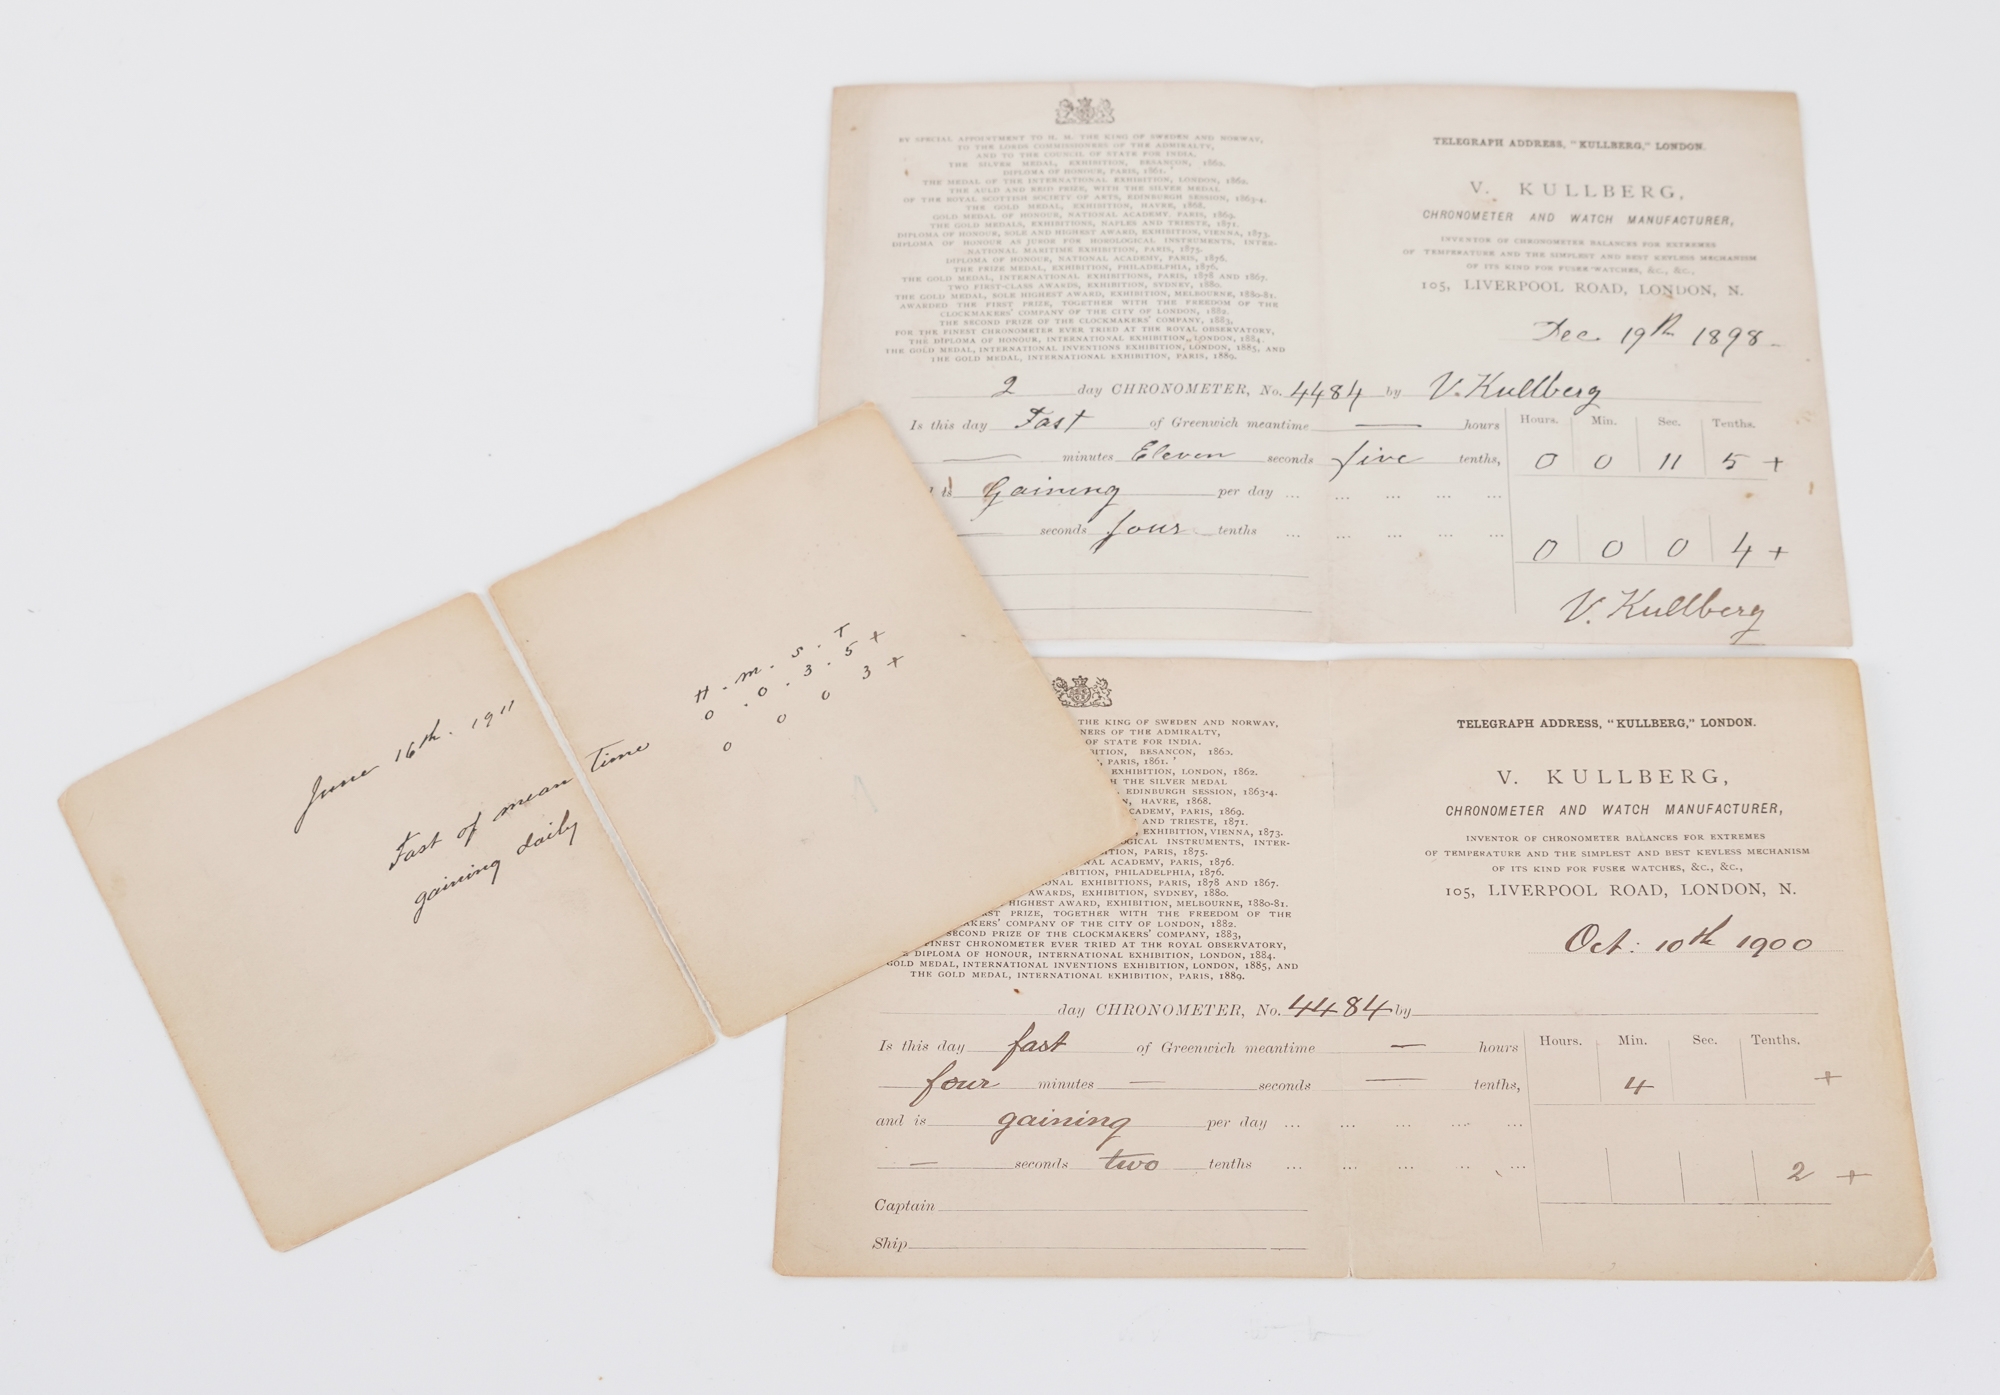 BY SPECIAL APPOINTMENT TO H. M. THE KING OF SWEDEN AND NORWAY,
TO THE LORDS COMMISSIONERS OF THE ADMIRALTY,
AND TO THE COUNCIL OF STATE FOR INDIA.
THE SILVER MEDAL, EXHIBITION, BESANCON, 1860.
DIPLOMA OF HONOUR, PARIS, 1861.
THE MEDAL OF THE INTERNATIONAL EXHIBITION, LONDON, 1862.
THE AULD AND REID PRIZE, WITH THE SILVER MEDAL
OF THE ROYAL SCOTTISH SOCIETY OF ARTS, EDINBURGH SESSION, 1863-4.
THE GOLD MEDAL, EXHIBITION, HAVRE, 1868.
GOLD MEDAL OF HONOUR, NATIONAL ACADEMY, PARIS, 1869.
THE GOLD MEDALS, EXHIBITIONS, NAPLES AND TRIESTE, 1871.
DIPLOMA OF HONOUR, SOLE AND HIGHEST AWARD, EXHIBITION, VIENNA, 1873.
DIPLOMA OF HONOUR AS JUROR FOR HOROLOGICAL INSTRUMENTS, INTER-
NATIONAL MARITIME EXHIBITION, PARIS, 1875.
DIPLOMA OF HONOUR, NATIONAL ACADEMY, PARIS, 1876.
THE PRIZE MEDAL, EXHIBITION, PHILADELPHIA, 1876.
THE GOLD MEDAL, INTERNATIONAL EXHIBITIONS, PARIS, 1878 AND 1867.
TWO FIRST-CLASS AWARDS, EXHIBITION, SYDNEY, 1880.
THE GOLD MEDAL, SOLE HIGHEST AWARD, EXHIBITION, MELBOURNE, 1880-81.
AWARDED THE FIRST PRIZE, TOGETHER WITH THE FREEDOM OF THE
CLOCKMAKERS' COMPANY OF THE CITY OF LONDON, 1882.
THE SECOND PRIZE OF THE CLOCKMAKERS' COMPANY, 1883,
FOR THE FINEST CHRONOMETER EVER TRIED AT THE ROYAL OBSERVATORY,
THE DIPLOMA OF HONOUR, INTERNATIONAL EXHIBITION, LONDON, 1884.
THE GOLD MEDAL, INTERNATIONAL INVENTIONS EXHIBITION, LONDON, 1885, AND
THE GOLD MEDAL, INTERNATIONAL EXHIBITION, PARIS, 1889.
TELEGRAPH ADDRESS, "KULLBERG," LONDON.
V. KULLBERG,
CHRONOMETER AND WATCH MANUFACTURER,
INVENTOR OF CHRONOMETER BALANCES FOR EXTREMES
OF TEMPERATURE AND THE SIMPLEST AND BEST KEYLESS MECHANISM
OF ITS KIND FOR FUSEE WATCHES, &C., &C.,
105, LIVERPOOL ROAD, LONDON, N.
Dec. 19th 1898
2 day CHRONOMETER, No. 4484 by V. Kullberg
Is this day Fast of Greenwich meantime — hours Hours. Min. Sec. Tenths.
— minutes Eleven seconds five tenths, 0 0 11 5 +
is Gaining per day ... ... ... ... ...
— seconds four tenths ... ... ... ... ...
0 0 0 4 +
V. Kullberg
June 16th. 1911
Fast of mean time
gaining daily
H. m. s. T
0 . 0 . 3 . 5 +
0 0 0 3 +
THE KING OF SWEDEN AND NORWAY,
NERS OF THE ADMIRALTY,
OF STATE FOR INDIA.
BITION, BESANCON, 1860.
, PARIS, 1861.
EXHIBITION, LONDON, 1862.
H THE SILVER MEDAL
, EDINBURGH SESSION, 1863-4.
N, HAVRE, 1868.
CADEMY, PARIS, 1869.
AND TRIESTE, 1871.
EXHIBITION, VIENNA, 1873.
OGICAL INSTRUMENTS, INTER-
ITION, PARIS, 1875.
NAL ACADEMY, PARIS, 1876.
IBITION, PHILADELPHIA, 1876.
ONAL EXHIBITIONS, PARIS, 1878 AND 1867.
AWARDS, EXHIBITION, SYDNEY, 1880.
HIGHEST AWARD, EXHIBITION, MELBOURNE, 1880-81.
RST PRIZE, TOGETHER WITH THE FREEDOM OF THE
AKERS' COMPANY OF THE CITY OF LONDON, 1882.
SECOND PRIZE OF THE CLOCKMAKERS' COMPANY, 1883,
FINEST CHRONOMETER EVER TRIED AT THE ROYAL OBSERVATORY,
E DIPLOMA OF HONOUR, INTERNATIONAL EXHIBITION, LONDON, 1884.
GOLD MEDAL, INTERNATIONAL INVENTIONS EXHIBITION, LONDON, 1885, AND
THE GOLD MEDAL, INTERNATIONAL EXHIBITION, PARIS, 1889.
TELEGRAPH ADDRESS, "KULLBERG," LONDON.
V. KULLBERG,
CHRONOMETER AND WATCH MANUFACTURER,
INVENTOR OF CHRONOMETER BALANCES FOR EXTREMES
OF TEMPERATURE AND THE SIMPLEST AND BEST KEYLESS MECHANISM
OF ITS KIND FOR FUSEE WATCHES, &C., &C.,
105, LIVERPOOL ROAD, LONDON, N.
Oct: 10th 1900
day CHRONOMETER, No. 4484 by
Is this day fast of Greenwich meantime — hours Hours. Min. Sec. Tenths.
four minutes — seconds — tenths, 4 +
and is gaining per day ... ... ... ... ...
— seconds two tenths ... ... ... ... ... 2 +
Captain
Ship